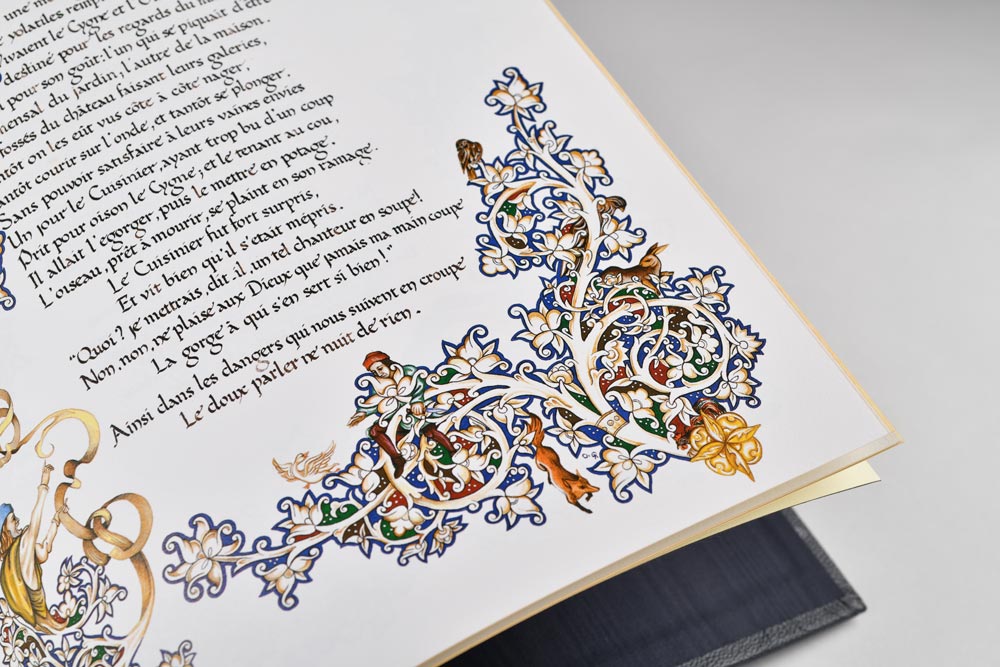 une
volatiles
Vivaient le Cygne et l'O
destiné pour les regards du
pour son goût: l'un qui se piquait d'être
mensal du jardin, l'autre de la maison.
ossés du château faisant leurs galeries,
tôt on les eût vus côte à côte nager,
antôt courir sur l'onde, et tantôt se plonger,
Sans pouvoir satisfaire à leurs vaines envies
Un jour le Cuisinier, ayant trop bu d'un coup
Prit pour oison le Cygne; et le tenant au cou,
Il allait l'égorger, puis le mettre en potage.
L'oiseau, prêt à mourir, se plaint en son ramage.
Le Cuisinier fut fort surpris,
Et vit bien qu'il s'était mépris.
"Quoi? je mettrais, dit-il, un tel chanteur en soupe!
Non, non, ne plaise aux Dieux que jamais ma main coupe
La gorge à qui s'en sert si bien!"
Ainsi dans les dangers qui nous suivent en croupe
Le doux parler ne nuit de rien.